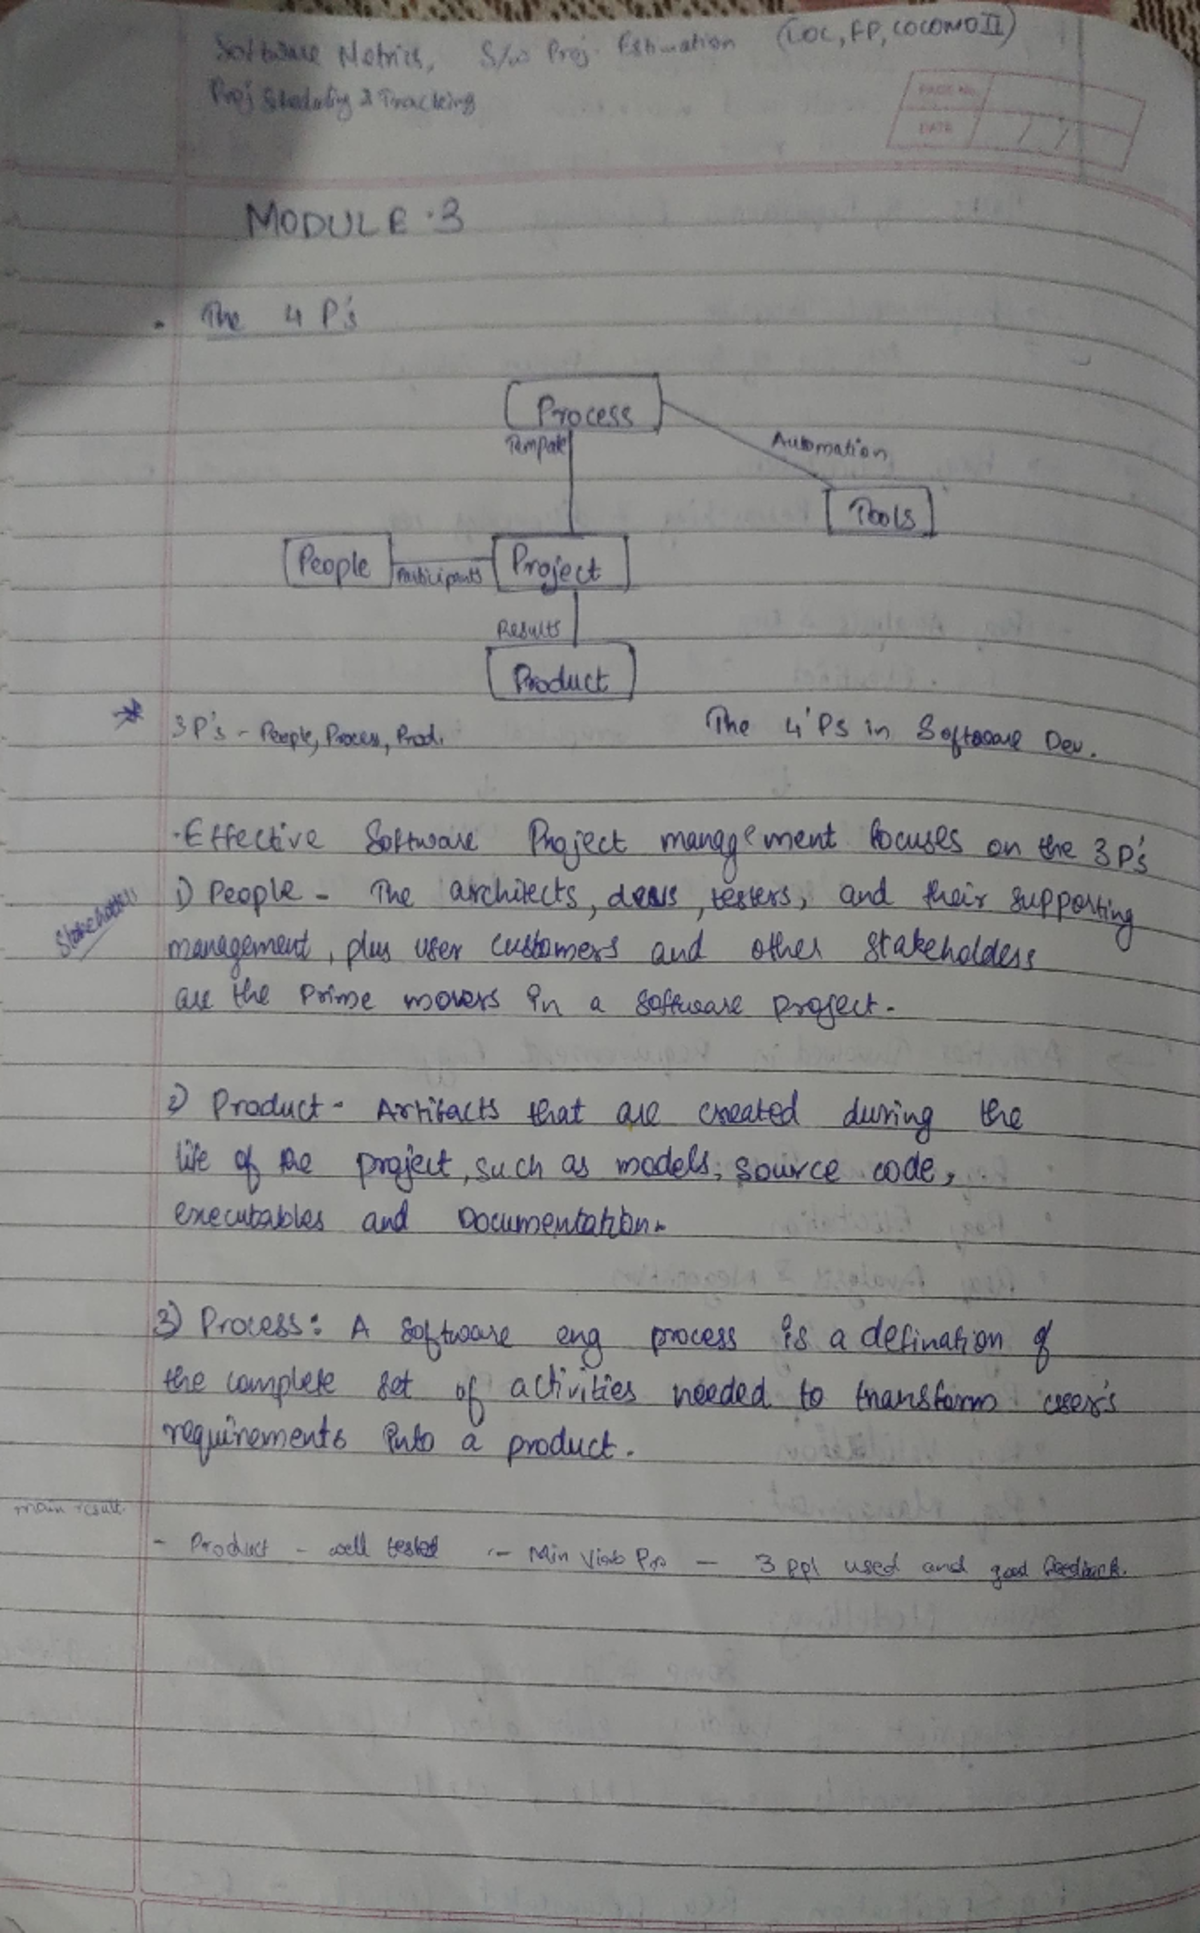 Software Metrics, S/w Proj. Estimation (LOC, FP, COCOMO II)
Proj Scheduling & Tracking
PAGE NO.
DATE / /
MODULE · 3
· The 4 P's
Process
Template
Automation
Tools
People
Participants
Project
Results
Product
3P's - People, Process, Prod.
The 4'Ps in Software Dev.
· Effective Software Project management focuses on the 3P's
Stakeholders
1) People - The architects, devs, testers, and their supporting
management, plus user customers and other stakeholders
are the Prime movers in a software project.
2) Product - Artifacts that are created during the
life of the project, such as models, source code,
executables and Documentation.
3) Process: A software eng process is a defination of
the complete set of activities needed to transform user's
requirements into a product.
main result
- Product - well tested - Min Viab Pro - 3 ppl used and good feedback.